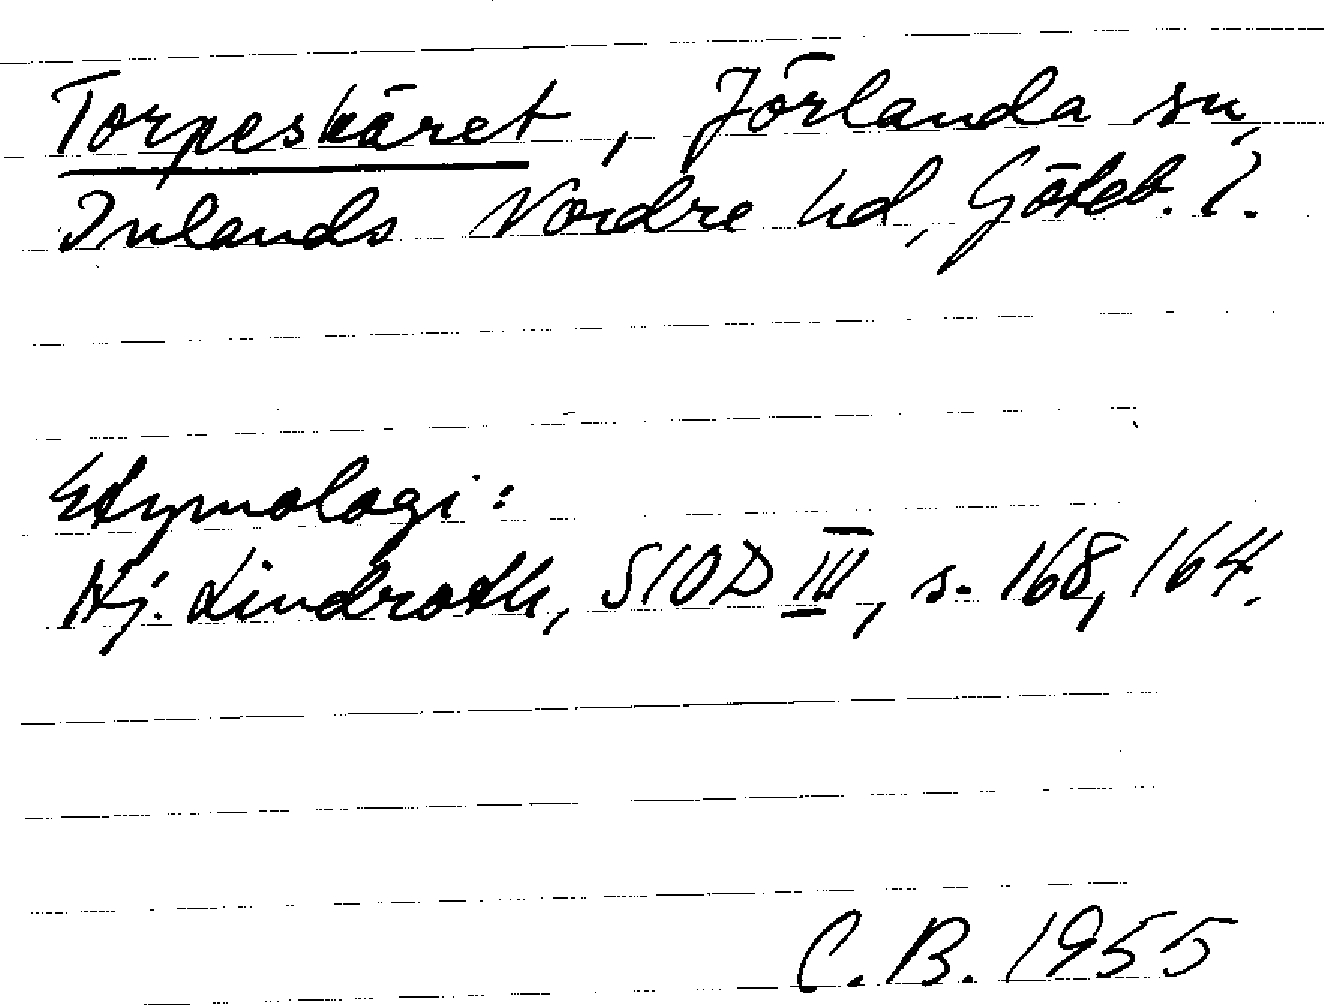 Torpeskäret, Jörlanda sn,
Inlands Nordre hd, Göteb. l.
Etymologi:
Hj. Lindroth, SIOD III, s. 168, 164.
C. B. 1955